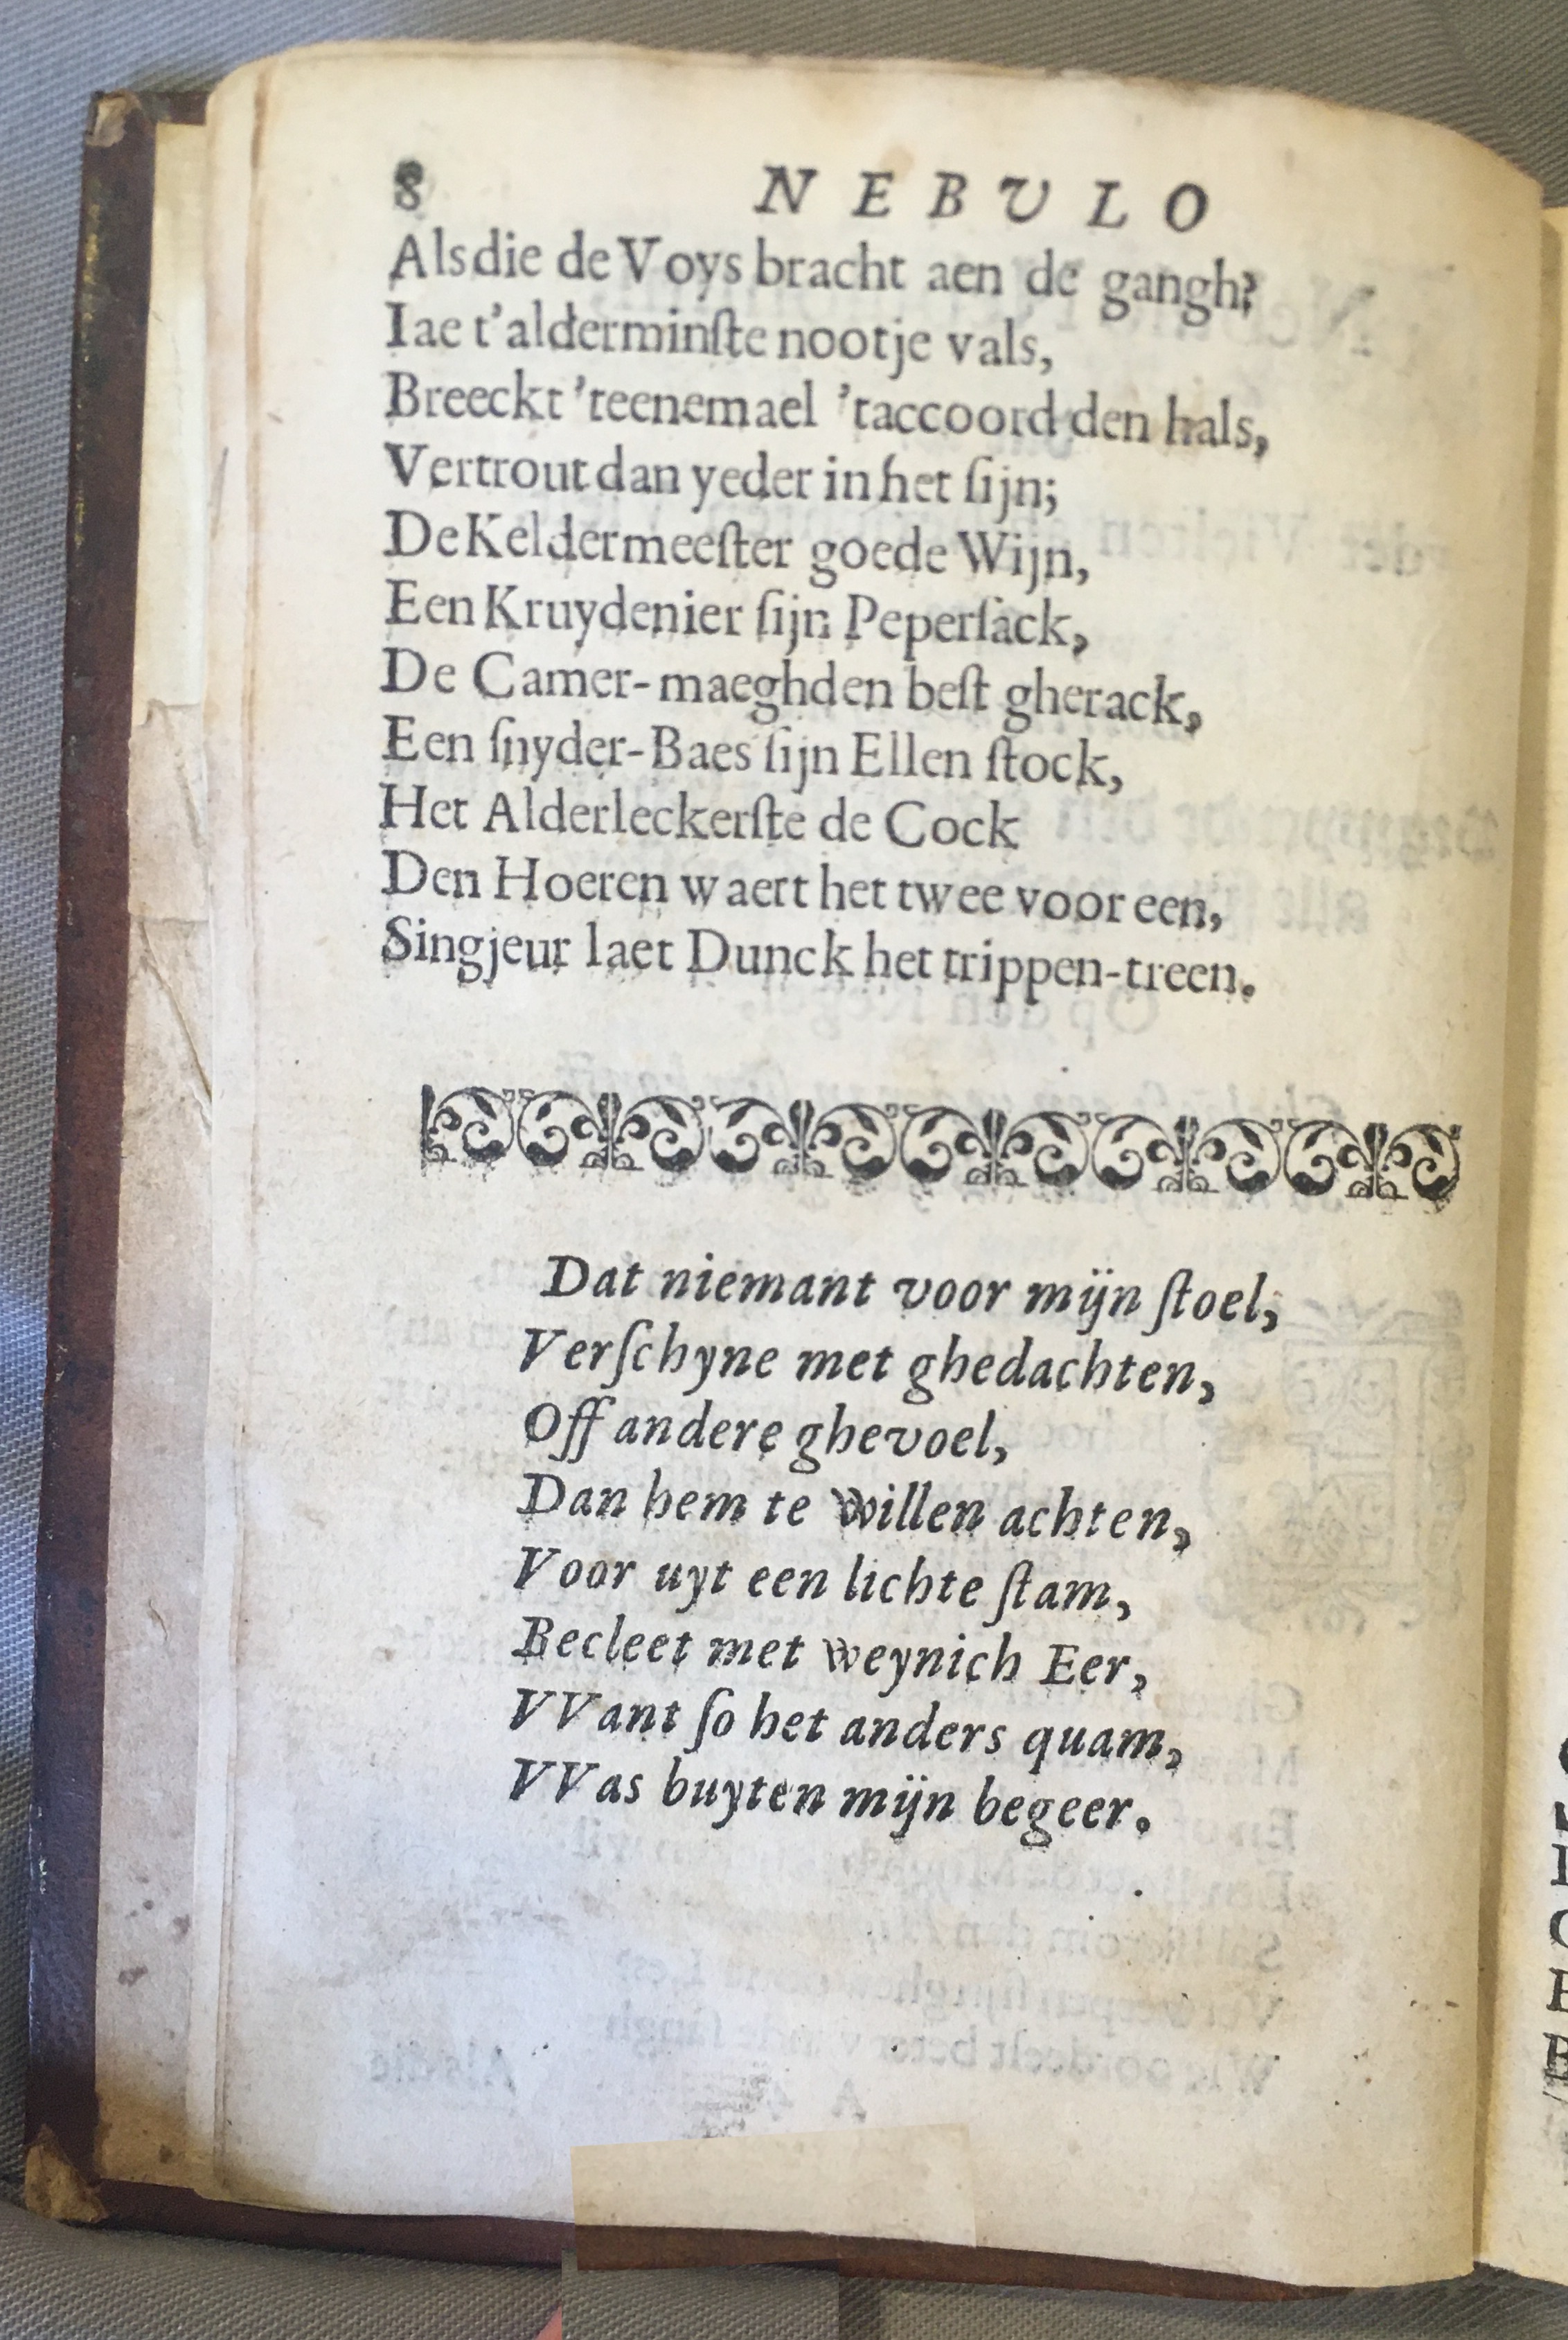 8 NEBVLO
Alsdie de Voys bracht aen de gangh?
Iae t'alderminſte nootje vals,
Breeckt 'teenemael 'taccoord den hals,
Vertrout dan yeder in het ſijn;
De Keldermeeſter goede Wijn,
Een Kruydenier ſijn Peperſack,
De Camer-maeghden beſt gherack,
Een ſnyder-Baes ſijn Ellen ſtock,
Het Alderleckerſte de Cock
Den Hoeren waert het twee voor een,
Singjeur laet Dunck het trippen-treen.
Dat niemant voor mijn ſtoel,
Verſchyne met ghedachten,
Off andere ghevoel,
Dan hem te willen achten,
Voor uyt een lichte ſtam,
Becleet met weynich Eer,
VVant ſo het anders quam,
VVas buyten mijn begeer.